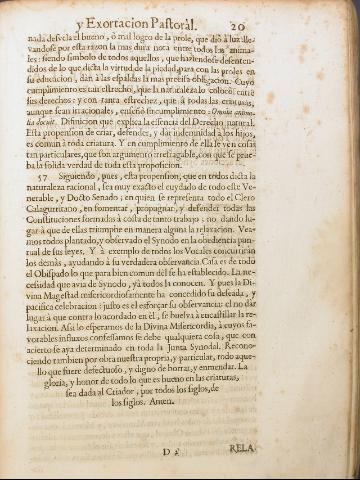 y Exortacion Pastoràl. 20
nada desvela el bueno, ò mal logro de la prole, que diò à luz; lle-
vandose por esta razon la mas dura nota entre todos los anima-
les: siendo simbolo de todos aquellos, que haziendose desenten-
didos de lo que dicta la virtud de la piedad, para con las proles en
su educacion, dàn à las espaldas la mas precisa obligacion. Cuyo
cumplimiento es tan estrecho, que la naturaleza lo colocò entre
sus derechos: y con tanta estrechez, que à todas las criaturas,
aunque sean irracionales, enseñò su cumplimiento: Omnia anima-
lia docuit. Difinicion que explica la essencia del Derecho natural.
Esta propension de criar, defender, y dar indemnidad à los hijos,
es comun à toda criatura. Y en cumplimiento de ella se vèn cosas
tan particulares, que son argumento irrefragable, con que se prue-
ba la solida verdad de toda esta proposicion.
57 Siguiendo, pues, esta propension, que en todos dicta la
naturaleza racional, sea muy exacto el cuydado de todo este Ve-
nerable, y Docto Senado; en quien se representa todo el Clero
Calaguritano, en fomentar, propugnar, y defender todas las
Constituciones formadas à costa de tanto trabajo: no dando lu-
gar à que de ellas triumphe en manera alguna la relaxacion. Vea-
mos todos plantado, y observado el Synodo en la obediencia pun-
tual de sus leyes. Y à exemplo de todos los Vocales concurriràn
los demàs, ayudando à su verdadera observancia. Casa es de todo
el Obispado lo que para bien comun dèl se ha establecido. La ne-
cessidad que avia de Synodo, yà todos la conocen. Y pues la Di-
vina Magestad misericordiosamente ha concedido su deseada, y
pacifica celebracion: justo es el esforçar su observancia: el no dàr
lugar à que contra lo acordado en èl, se buelva à encastillar la re-
laxacion. Assi lo esperamos de la Divina Misericordia, à cuyos fa-
vorables influxos confessamos se debe qualquiera cosa, que con
acierto se aya determinado en toda la Junta Synodal. Recono-
ciendo tambien por obra nuestra propria, y particular, todo aque-
llo que fuere defectuoso, y digno de borrar, y enmendar. La
gloria, y honor de todo lo que es bueno en las criaturas,
sea dada al Criador, por todos los siglos, de
los siglos. Amen.
D 2 RELA